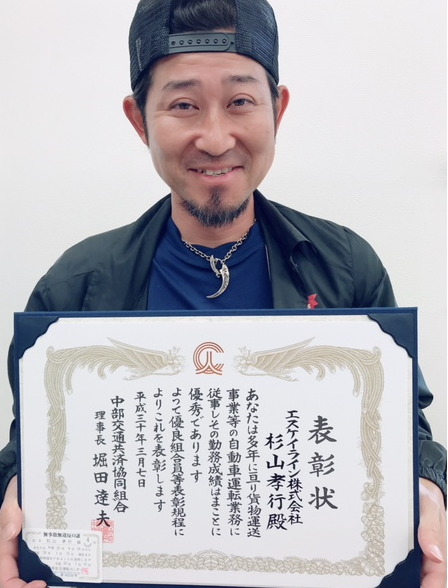 表彰状
エスケイライン株式会社
杉山孝行殿
あなたは多年に亘り貨物運送
事業等の自動車運転業務に
従事しその勤務成績はまことに
優秀であります
よって優良組合員等表彰規程に
よりこれを表彰します
平成三十年三月七日
中部交通共済協同組合
理事長 堀田達夫
無事故無違反の証